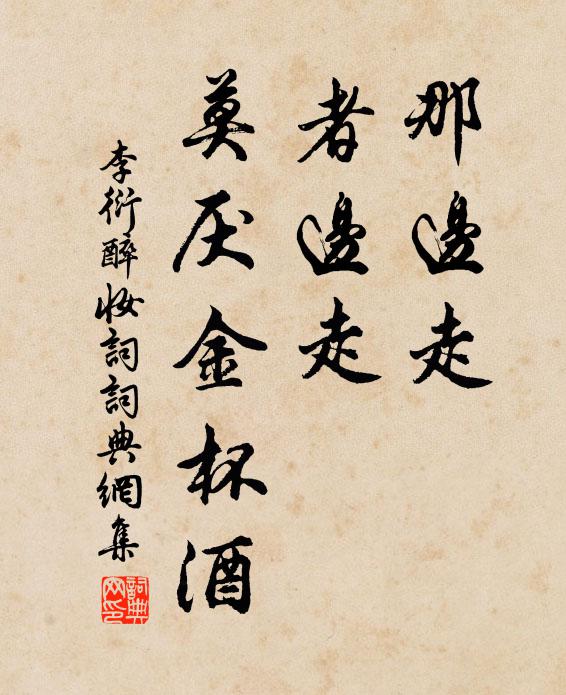 那邊走
者邊走
莫厌金杯酒
李衍醉妝詞詞典網集
詞典网印